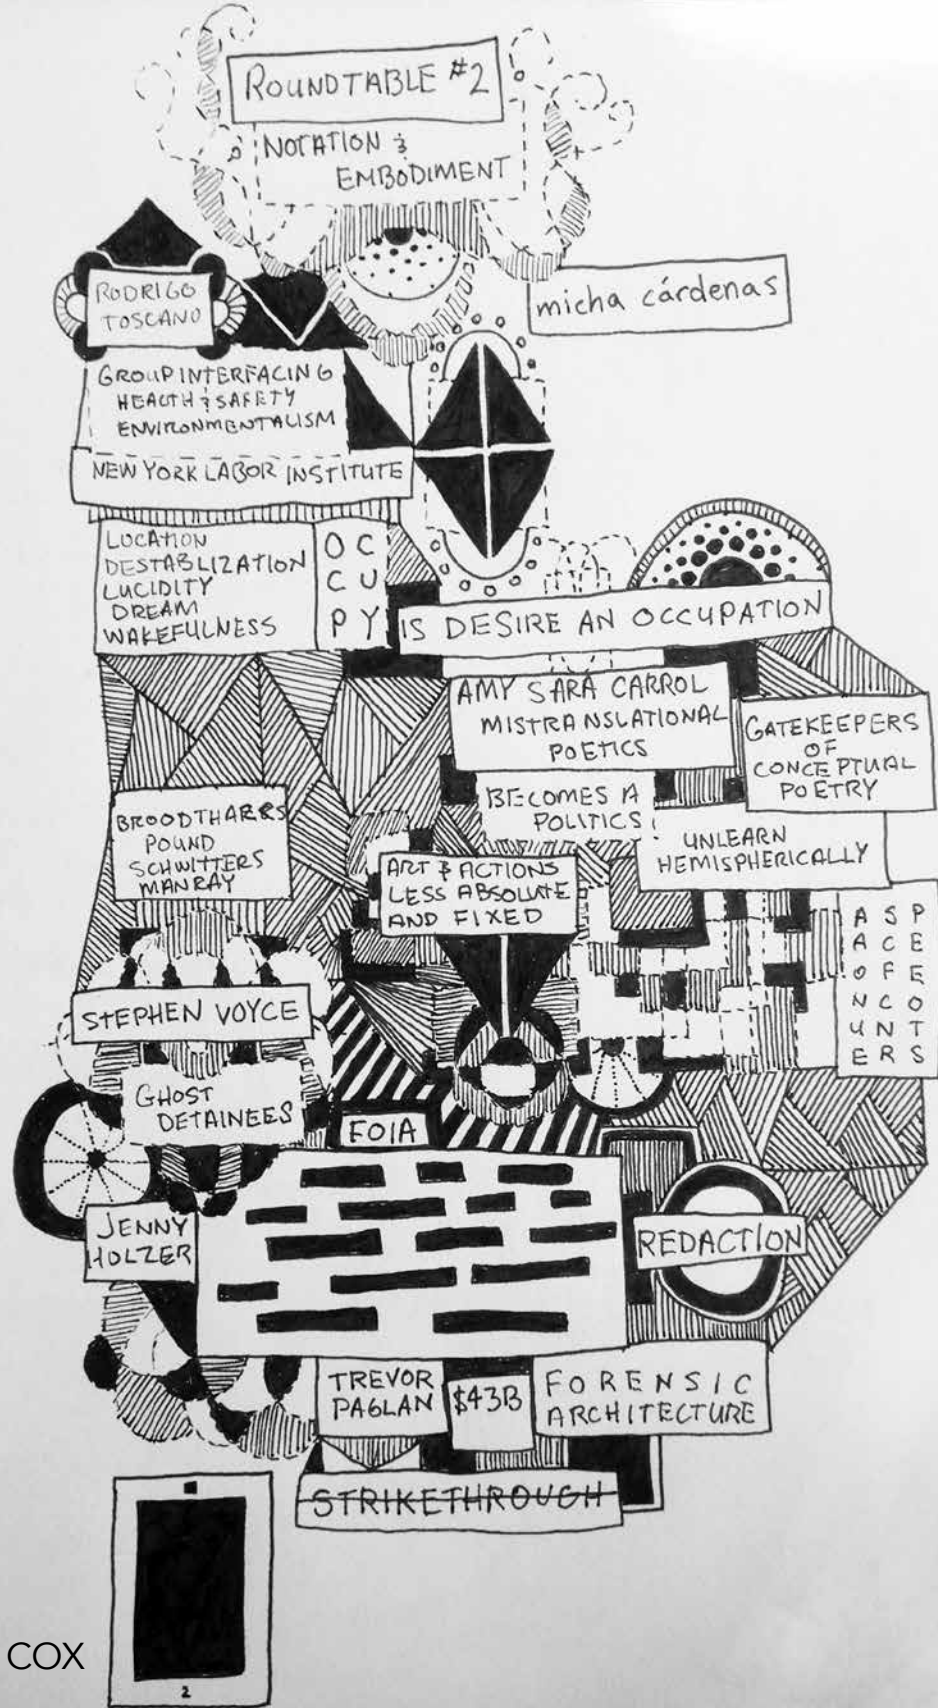 ROUNDTABLE #2
NOTATION &
EMBODIMENT
RODRIGO
TOSCANO
micha cárdenas
GROUP INTERFACING
HEALTH & SAFETY
ENVIRONMENTALISM
NEW YORK LABOR INSTITUTE
LOCATION
DESTABLIZATION
LUCIDITY
DREAM
WAKEFULNESS
OC
CU
PY
IS DESIRE AN OCCUPATION
AMY SARA CARROL
MISTRANSLATIONAL
POETICS
GATEKEEPERS
OF
CONCEPTUAL
POETRY
BECOMES A
POLITICS
UNLEARN
HEMISPHERICALLY
BROODTHARRS
POUND
SCHWITTERS
MANRAY
ART & ACTIONS
LESS ABSOLUTE
AND FIXED
A SP
A CE
O FE
N CO
U NT
E RS
STEPHEN VOYCE
GHOST
DETAINEES
FOIA
JENNY
HOLZER
REDACTION
TREVOR
PAGLAN
$43B
FORENSIC
ARCHITECTURE
STRIKETHROUGH
COX
2